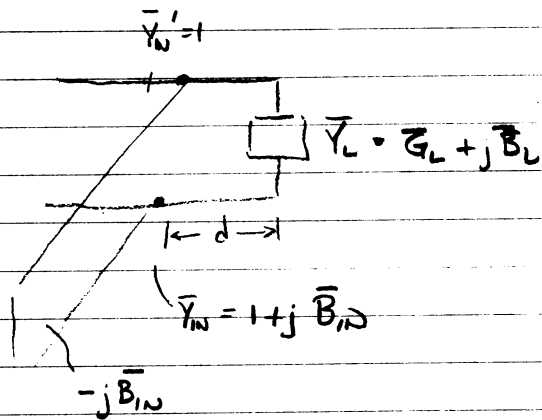 Ȳ_IN' = 1
Ȳ_L = Ḡ_L + j B̄_L
d
Ȳ_IN = 1 + j B̄_IN
-j B̄_IN